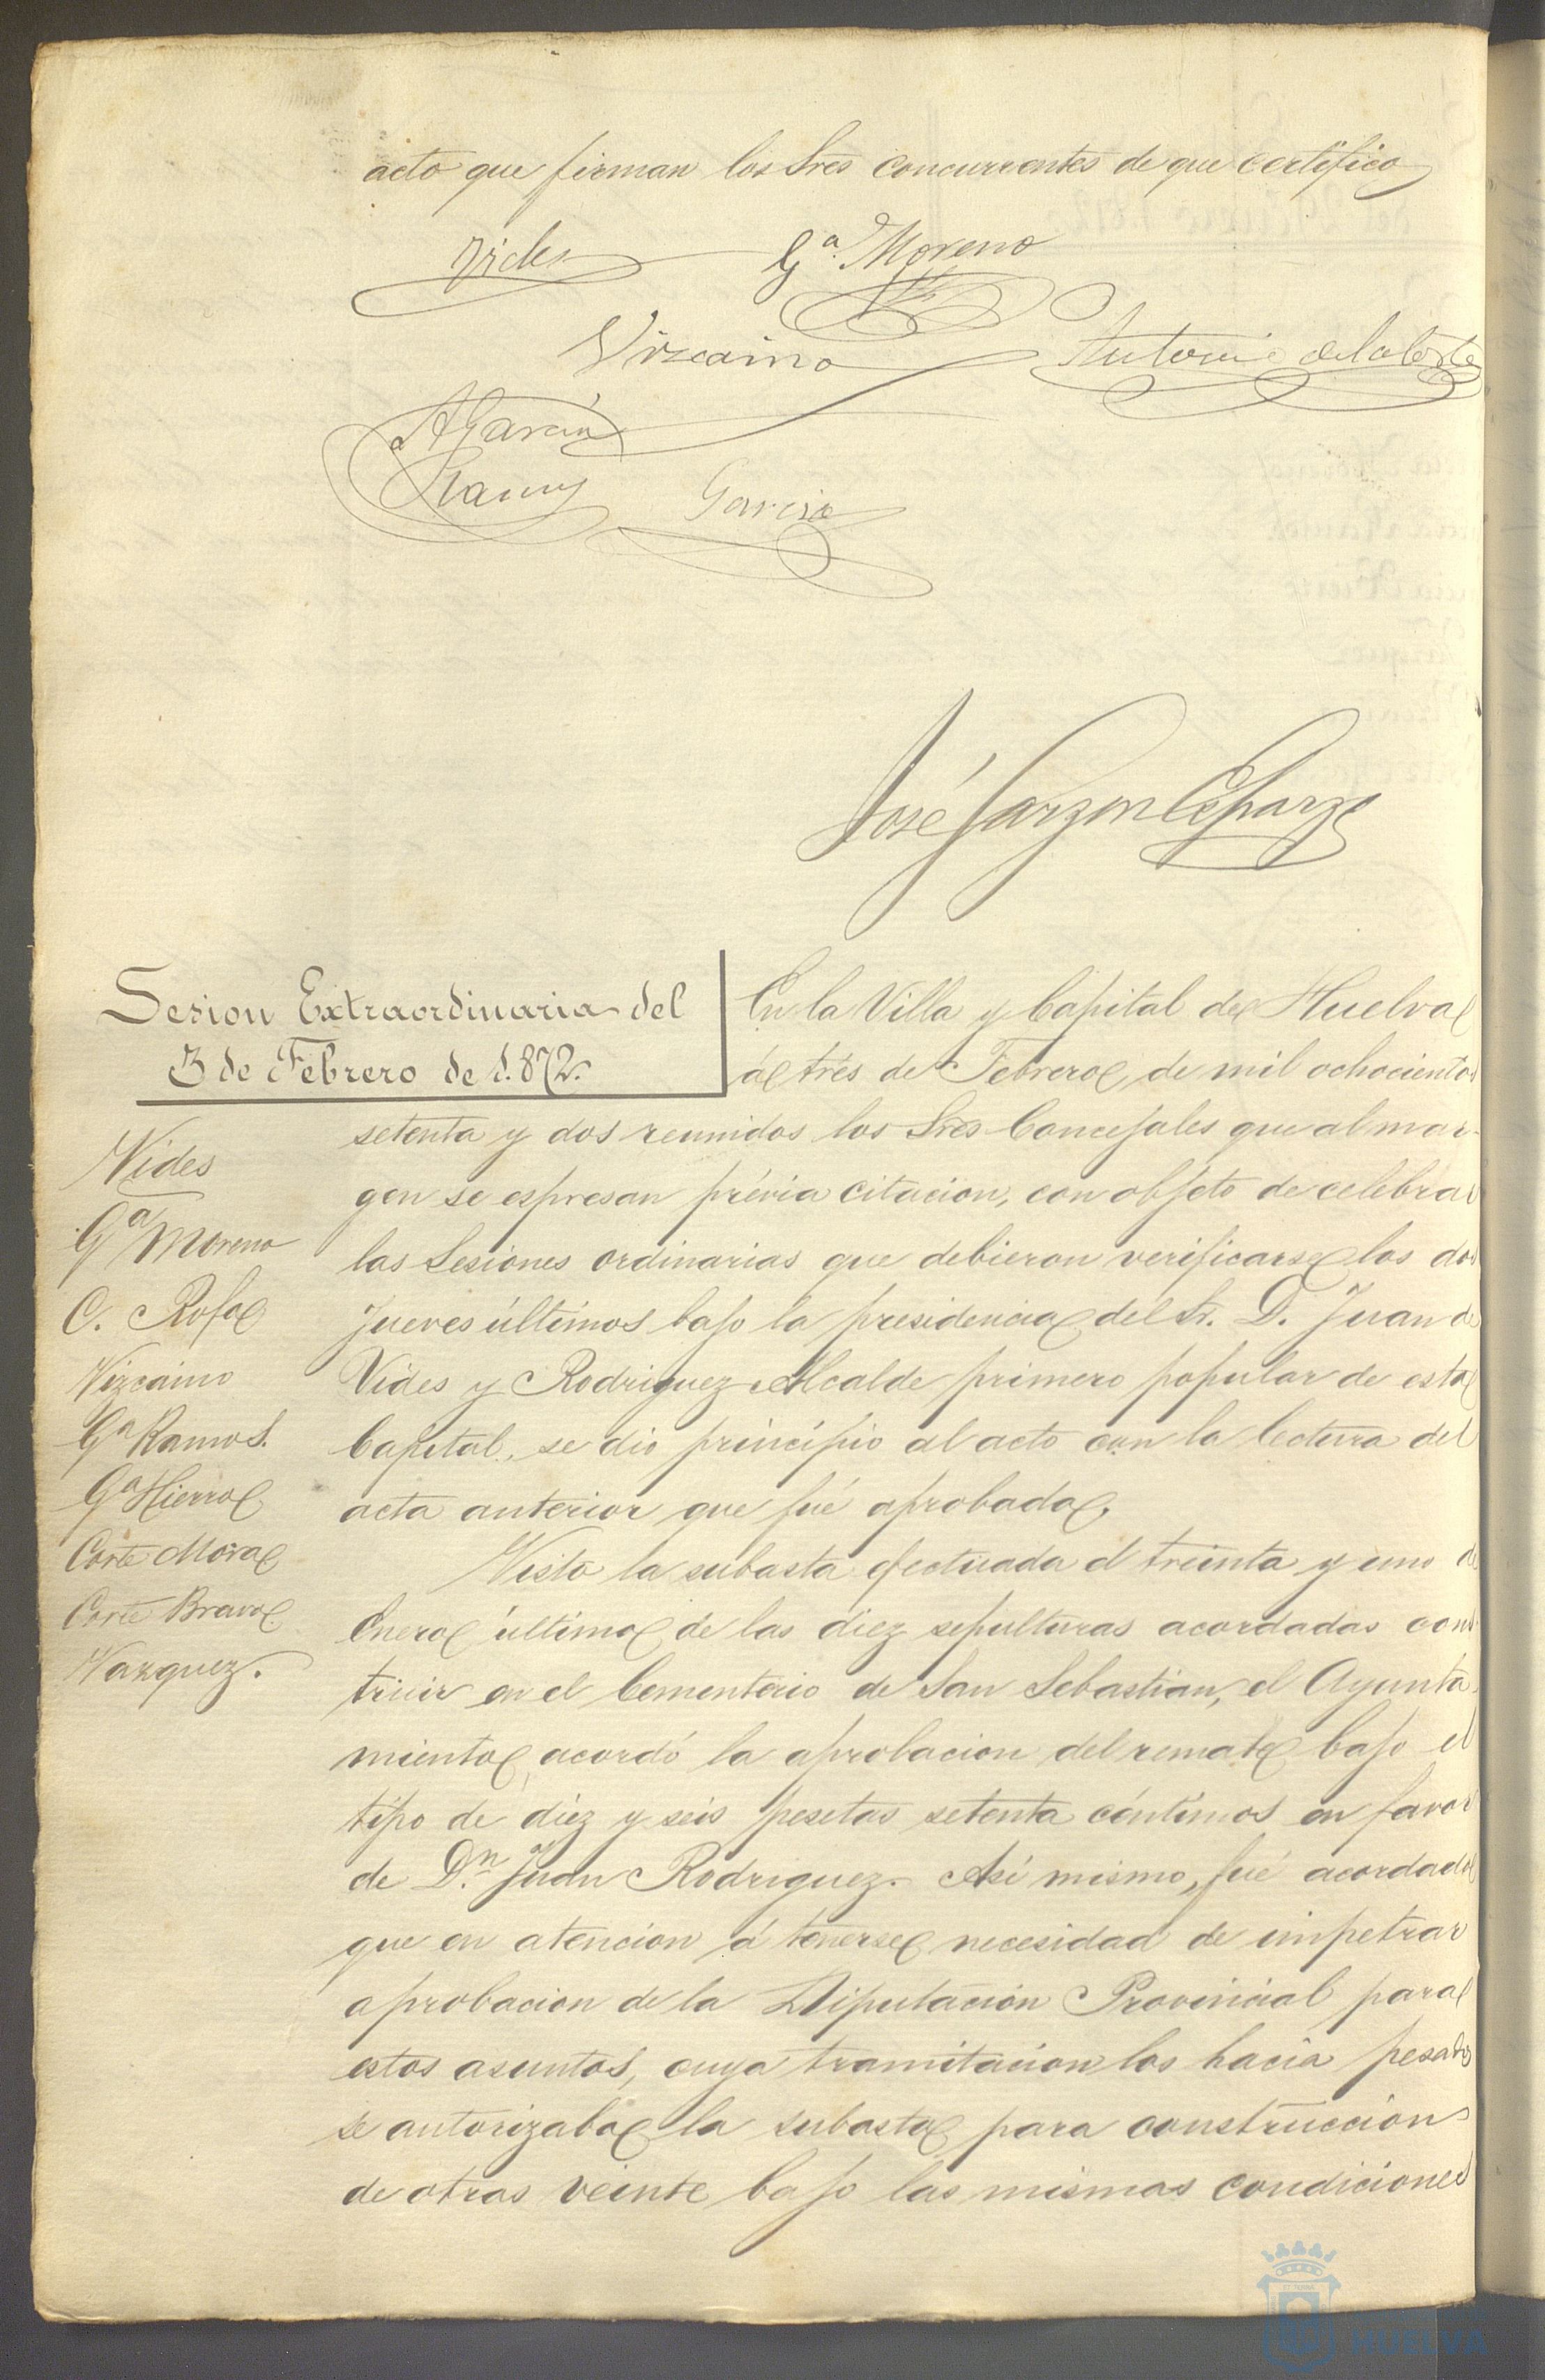 acto que firman los Sres concurrentes de que certifico
Vides Gª Moreno
Vizcaino Antonio de la Corte
A Garcia
Ramos Garcia
José Garzon Esparza
Sesion Extraordinaria del
3 de Febrero de 1.872.
En la Villa y Capital de Huelva
á tres de Febrero de mil ochocientos
setenta y dos reunidos los Sres Concejales que al mar-
gen se espresan prévia citacion, con objeto de celebrar
las Sesiones ordinarias que debieron verificarse los dos
Jueves últimos bajo la presidencia del Sr. D. Juan de
Vides y Rodriguez Alcalde primero popular de esta
Capital, se dió principio al acto con la lectura del
acta anterior que fué aprobada.
Vides
Gª Moreno
C. Rofa
Vizcaino
Gª Ramos.
Gª Hierro
Corte Mora
Corte Bravo
Vazquez.
Vista la subasta efectuada el treinta y uno de
Enero último de las diez sepulturas acordadas cons
truir en el Cementerio de San Sebastian, el Ayunta-
miento, acordó la aprobacion del remate bajo el
tipo de diez y seis pesetas setenta céntimos en favor
de D.n Juan Rodriguez. Asi mismo, fué acordado
que en atencion á tenerse necesidad de impetrar
aprobacion de la Diputacion Provincial para
estos asuntos, cuya tramitacion los hacia pesados
se autorizaba la subasta para construccion
de otras veinte bajo las mismas condiciones
HUELVA